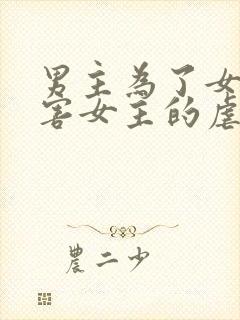 男主為了女
害女主的虐
農二少